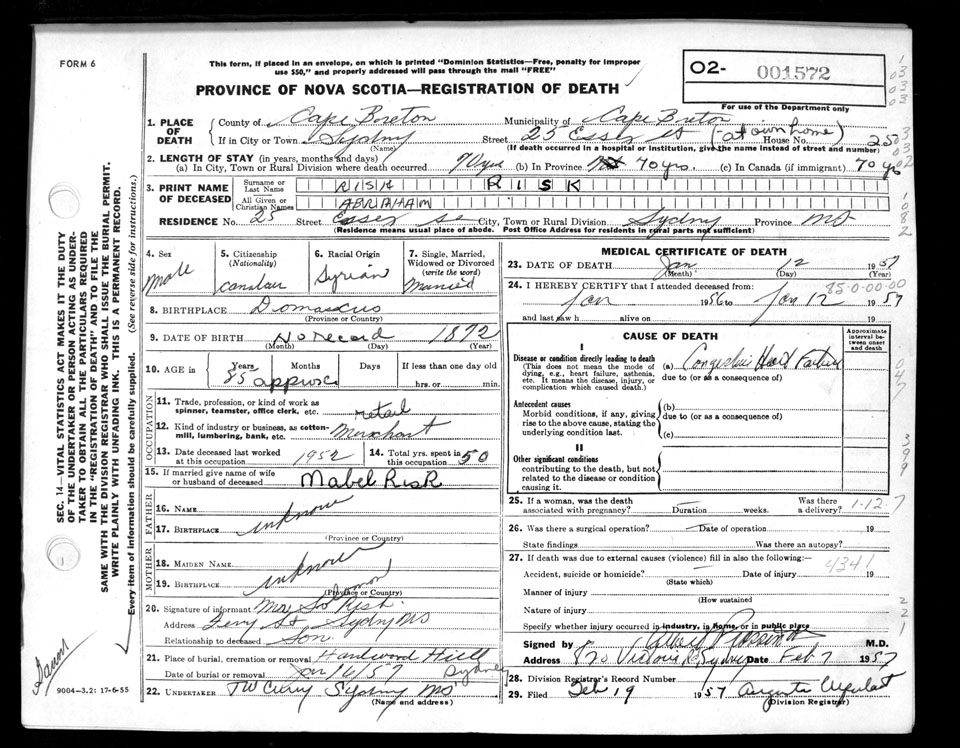 FORM 6
This form, if placed in an envelope, on which is printed "Dominion Statistics—Free, penalty for improper
use $50," and properly addressed will pass through the mail "FREE"
PROVINCE OF NOVA SCOTIA—REGISTRATION OF DEATH
O2- 001572
For use of the Department only
1. PLACE OF DEATH
County of Cape Breton Municipality of Cape Breton
If in City or Town Sydney Street 25 Essex St (-at own home) House No. 25
(Name) (If death occurred in a hospital or institution, give the name instead of street and number)
2. LENGTH OF STAY (in years, months and days)
(a) In City, Town or Rural Division where death occurred 70 yrs (b) In Province 70 yrs. (c) In Canada (if immigrant) 70 yrs
3. PRINT NAME OF DECEASED
Surname or Last Name RISK RISK
All Given or Christian Names ABRAHAM
RESIDENCE No. 25 Street Essex St City, Town or Rural Division Sydney Province NS
(Residence means usual place of abode. Post Office Address for residents in rural parts not sufficient)
4. Sex Male
5. Citizenship (Nationality)
6. Racial Origin Syrian
7. Single, Married, Widowed or Divorced (write the word) Married
8. BIRTHPLACE Domascus
(Province or Country)
9. DATE OF BIRTH No record 1872
(Month) (Day) (Year)
10. AGE in Years Months Days If less than one day old
85 approx hrs. or min.
OCCUPATION
11. Trade, profession, or kind of work as
spinner, teamster, office clerk, etc. retail
12. Kind of industry or business, as cotton-
mill, lumbering, bank, etc. Merchant
13. Date deceased last worked
at this occupation 1952
14. Total yrs. spent in
this occupation 50
15. If married give name of wife
or husband of deceased Mabel Risk
FATHER
16. Name unknown
17. Birthplace
(Province or Country)
MOTHER
18. Maiden Name unknown
19. Birthplace
(Province or Country)
20. Signature of informant Risk
Address Ferry St Sydney NS
Relationship to deceased Son
21. Place of burial, cremation or removal Hardwood Hill
Date of burial or removal Jan 16/57 Sydney
22. Undertaker TW Curry Sydney NS
(Name and address)
MEDICAL CERTIFICATE OF DEATH
23. DATE OF DEATH Jan. 12 1957
(Month) (Day)
24. I HEREBY CERTIFY that I attended deceased from: 85-0-00-00
Jan 1956 to Jan 12 1957
and last saw h alive on 19
CAUSE OF DEATH
Approximate interval between onset and death
I
Disease or condition directly leading to death (a) Congestive Heart Failure
(This does not mean the mode of
dying, e.g., heart failure, asthenia,
etc. It means the disease, injury, or
complication which caused death.)
due to (or as a consequence of)
Antecedent causes (b)
Morbid conditions, if any, giving
rise to the above cause, stating the
underlying condition last.
due to (or as a consequence of)
(c)
II
Other significant conditions
contributing to the death, but not
related to the disease or condition
causing it.
25. If a woman, was the death
associated with pregnancy? — Duration weeks. Was there
a delivery? 1-12-7
26. Was there a surgical operation? — Date of operation 19
State findings Was there an autopsy?
27. If death was due to external causes (violence) fill in also the following:— 4341
Accident, suicide or homicide? Date of injury 19
(State which)
Manner of injury
(How sustained
Nature of injury
Specify whether injury occurred in industry, in home, or in public place
Signed by M.D.
Address Victoria Rd Sydney Date Feb 7 1957
28. Division Registrar's Record Number
29. Filed Feb 19 1957
(Division Registrar)
SEC. 14—VITAL STATISTICS ACT MAKES IT THE DUTY
OF THE UNDERTAKER OR PERSON ACTING AS UNDER-
TAKER TO OBTAIN ALL THE PARTICULARS REQUIRED
IN THE "REGISTRATION OF DEATH" AND TO FILE THE
SAME WITH THE DIVISION REGISTRAR WHO SHALL ISSUE THE BURIAL PERMIT.
WRITE PLAINLY WITH UNFADING INK. THIS IS A PERMANENT RECORD.
Every item of information should be carefully supplied. (See reverse side for instructions.)
9004-3.2: 17-6-55